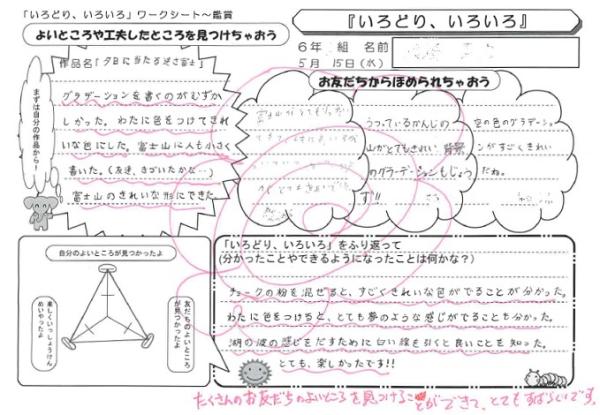 「いろどり、いろいろ」ワークシート～鑑賞
『いろどり、いろいろ』
よいところや工夫したところを見つけちゃおう
6年 組 名前
5月 15日(水)
作品名「夕日に当たる逆さ富士」
まずは自分の作品から!
グラデーションを書くのがむずか
しかった。わたに色をつけてきれ
いな色にした。富士山に人も小さく
書いた。(友達、きづいたかな…)
富士山のきれいな形にできた。
お友だちからほめられちゃおう
うつっているかんじの
山がとてもきれい。背景
のグラデーションもじょうず!!
空の色のグラデーション
がすごくきれい
だね。
自分のよいところが見つかったよ
楽しくいっしょうけんめいやったよ
友だちのよいところが見つかったよ
「いろどり、いろいろ」をふり返って
(分かったことやできるようになったことは何かな?)
チョークの粉を混ぜると、すごくきれいな色がでることが分かった。
わたに色をつけると、とても夢のような感じがでることも分かった。
湖の波の感じをだすために白い線を引くと良いことを知った。
とても、楽しかったです!!
たくさんのお友だちのよいところを見つけることができて、とてもすばらしいです。